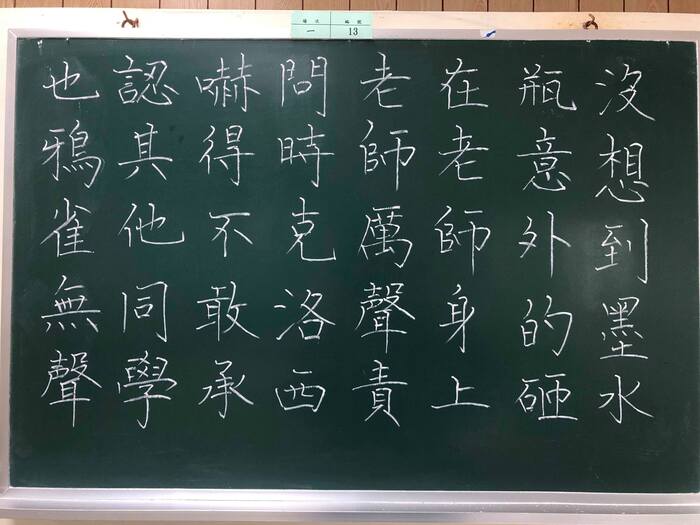 場次 編號
一 13
沒想到墨水
瓶意外的砸
在老師身上
老師厲聲責
問時克洛西
嚇得不敢承
認其他同學
也鴉雀無聲